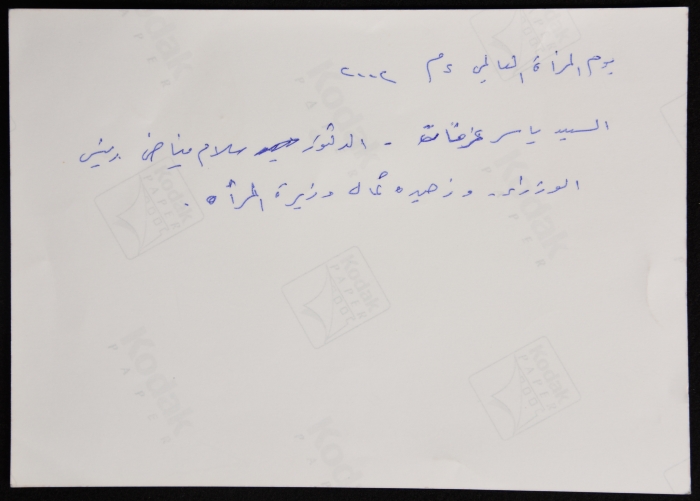 يوم المرأة العالمي عام ٢٠٠٢
السيد ياسر عرفات - الدكتور سلام فياض رئيس
الوزراء - و زهيره كمال وزيرة المرأه .
Kodak
PAPER